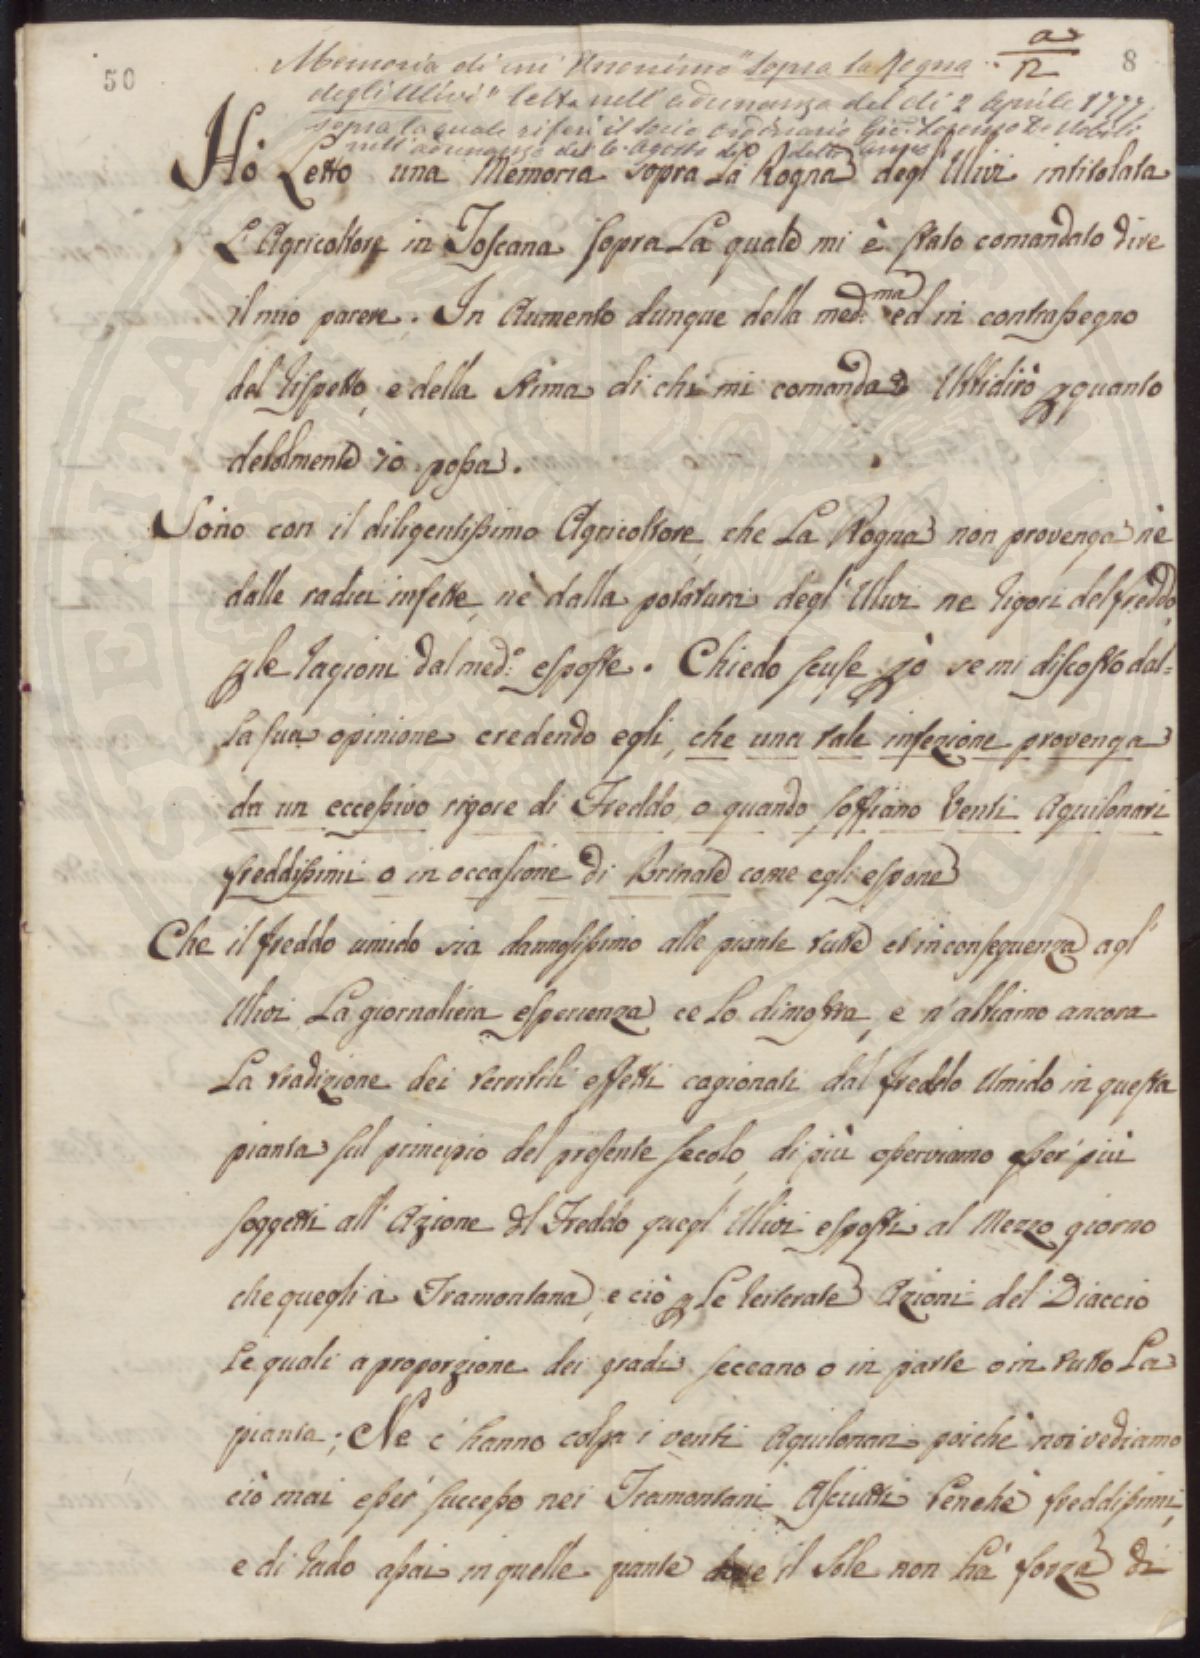 50
8
a
12
Memoria di un Anonimo "sopra la Rogna
degli Ulivi" letta nell'adunanza del dì 2 Aprile 1777.
sopra la quale riferì il socio ordinario Gio: Lorenzo De Nobili
nell'adunanza del 6 Agosto dello anno
Hò Letto una Memoria sopra La Rogna degl'Ulivi intitolata
L'Agricoltore in Toscana sopra La quale mi è stato comandato dire
il mio parere. In Aumento dunque della med:ma ed in contrassegno
del rispetto, e della stima di chi mi comanda Ubbidirò p quanto
debolmente io possa.
Sono con il diligentissimo Agricoltore, che La Rogna non provenga nè
dalle radici infette, nè dalla potatura degl'Ulivi ne rigori del freddo,
p le ragioni dal med:o esposte. Chiedo scuse pò se mi discosto dal=
La sua opinione credendo egli, che una tale infezione provenga
da un eccessivo rigore di Freddo, o quando soffiano Venti Aquilonari
freddissimi o in occasione di Brinate come egli espone
Che il freddo umido sia dannosissimo alle piante tutte et in conseguenza agl'
Ulivi La giornaliera esperienza ce Lo dimostra, e n'abbiamo ancora
La tradizione dei terribili effetti cagionati dal freddo Umido in questa
pianta sul principio del presente secolo, di più osserviamo esser più
soggetti all'Azione del Freddo quegl'Ulivi esposti al Mezzo giorno
che quegli a Tramontana, e ciò p Le reiterate Azioni del Diaccio
Le quali a proporzione dei gradi seccano o in parte o in tutto La
pianta; Ne c'hanno colpa i venti Aquilonari poichè noi vediamo
ciò mai esser successo nei Tramontani Asciutti benchè freddissimi,
e di rado assai in quelle piante dove il Sole non hà forza di